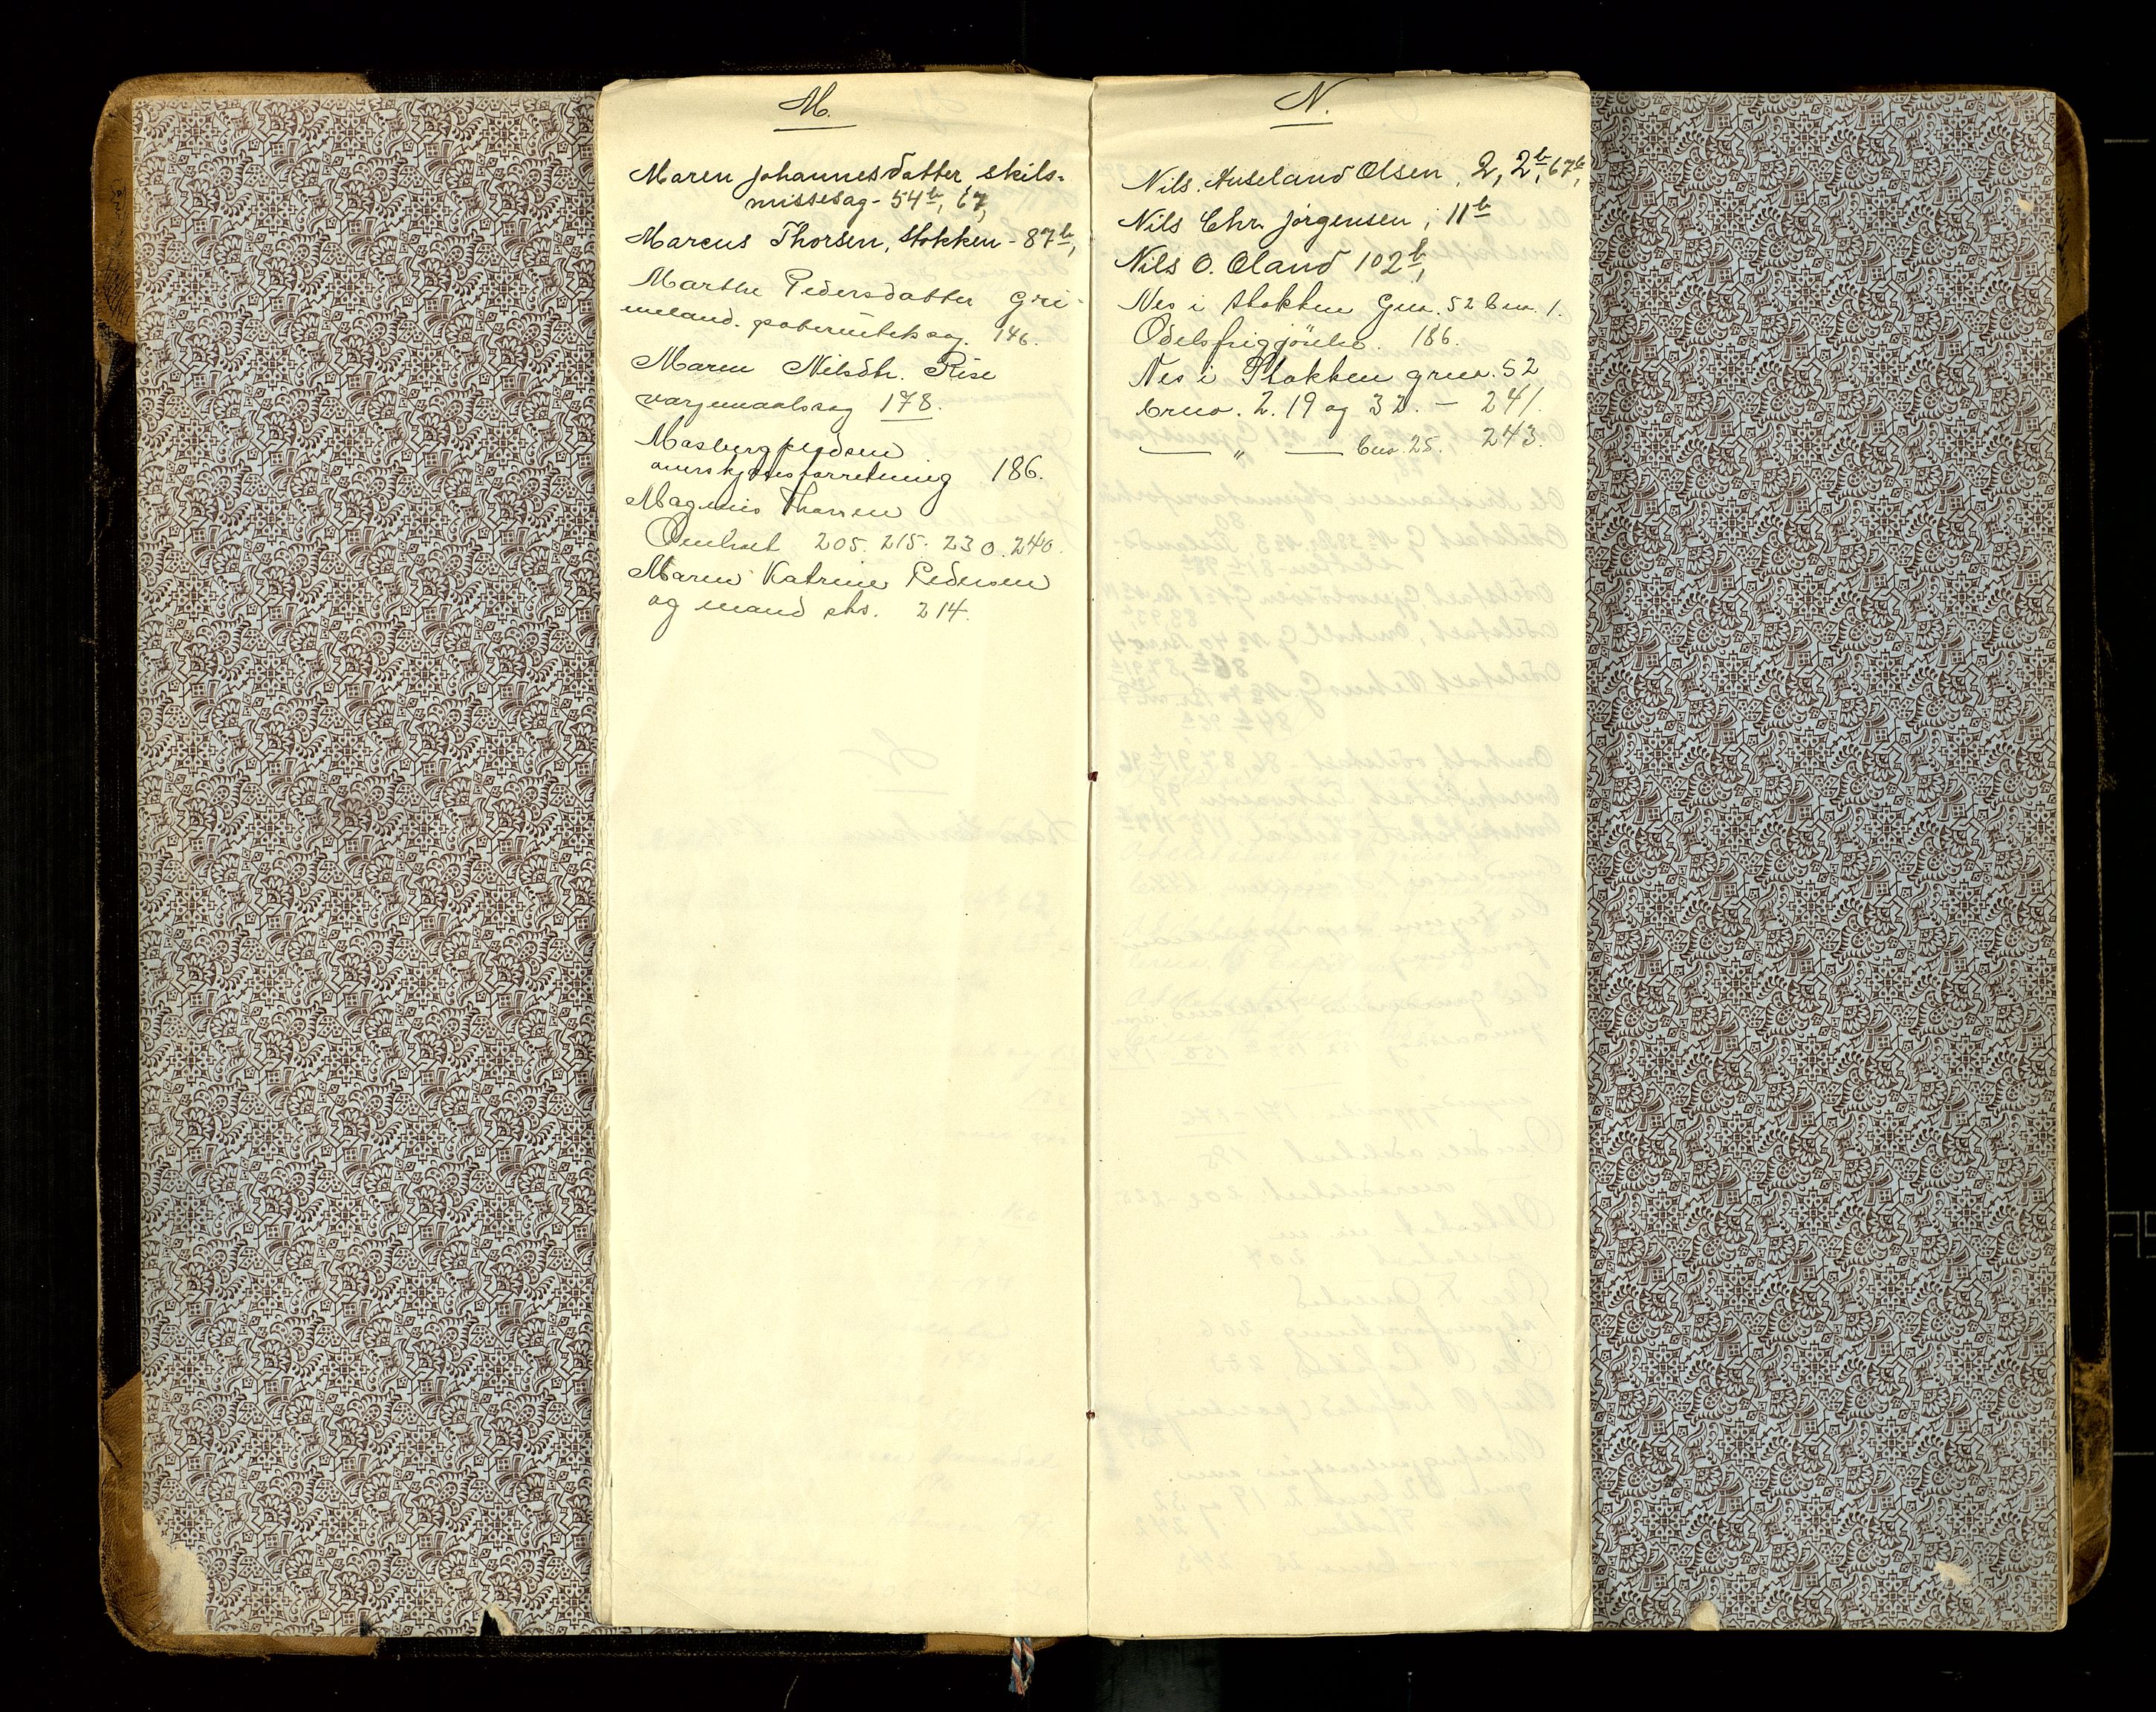 M.
Maren Johannesdatter, skils-
missesag - 54b, 67,
Marcus Thorsen, Stokken - 87b,
Marthe Pedersdatter Gri-
meland. 146.
Maren Nilsdtr. Rise
værgemaalssag 178.
Mosberg
overskjønsforretning 186.
Magnus Thorsen
Omholt 205. 215. 230. 240.
Maren Katrine Pedersen
og mand sks. 214.
N.
Nils Auseland Olsen, 2, 2b, 67b,
Nils Chr. Jørgensen, 11b
Nils O. Oland 102b,
Nes i Stokken Gno. 52 bno. 1.
Odelsfrigjörelse. 186.
Nes i Stokken gno. 52
bno. 2. 19 og 32. — 241.
— " — bno. 25. 243.